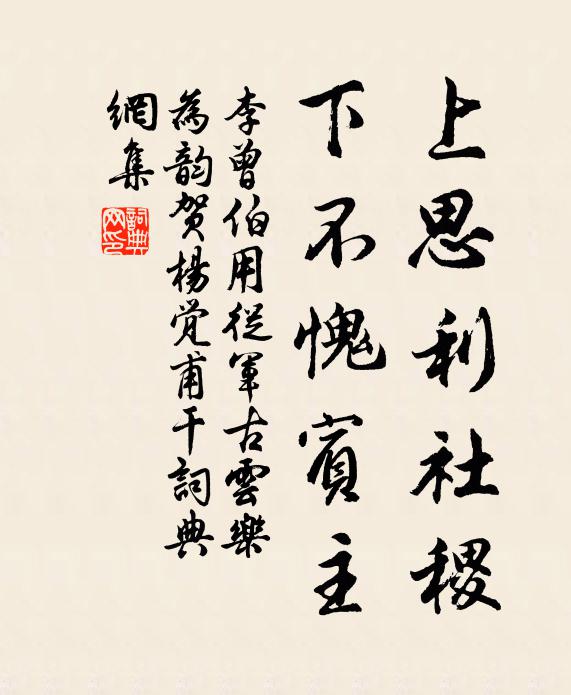 上思利社稷
下不愧賓主
李曾伯用從軍古雲樂
為韵賀楊觉甫干詞典
網集
詞典网印